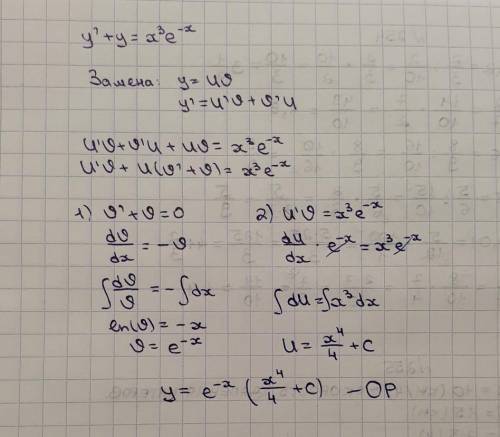 y' + y = x³e⁻ˣ
Замена: y = uϑ
y' = u'ϑ + ϑ'u
u'ϑ + ϑ'u + uϑ = x³e⁻ˣ
u'ϑ + u(ϑ' + ϑ) = x³e⁻ˣ
1) ϑ' + ϑ = 0
dϑ/dx = -ϑ
∫dϑ/ϑ = -∫dx
ln(ϑ) = -x
ϑ = e⁻ˣ
2) u'ϑ = x³e⁻ˣ
du/dx · e⁻ˣ = x³e⁻ˣ
∫du = ∫x³dx
u = x⁴/4 + C
y = e⁻ˣ (x⁴/4 + C) - ОР